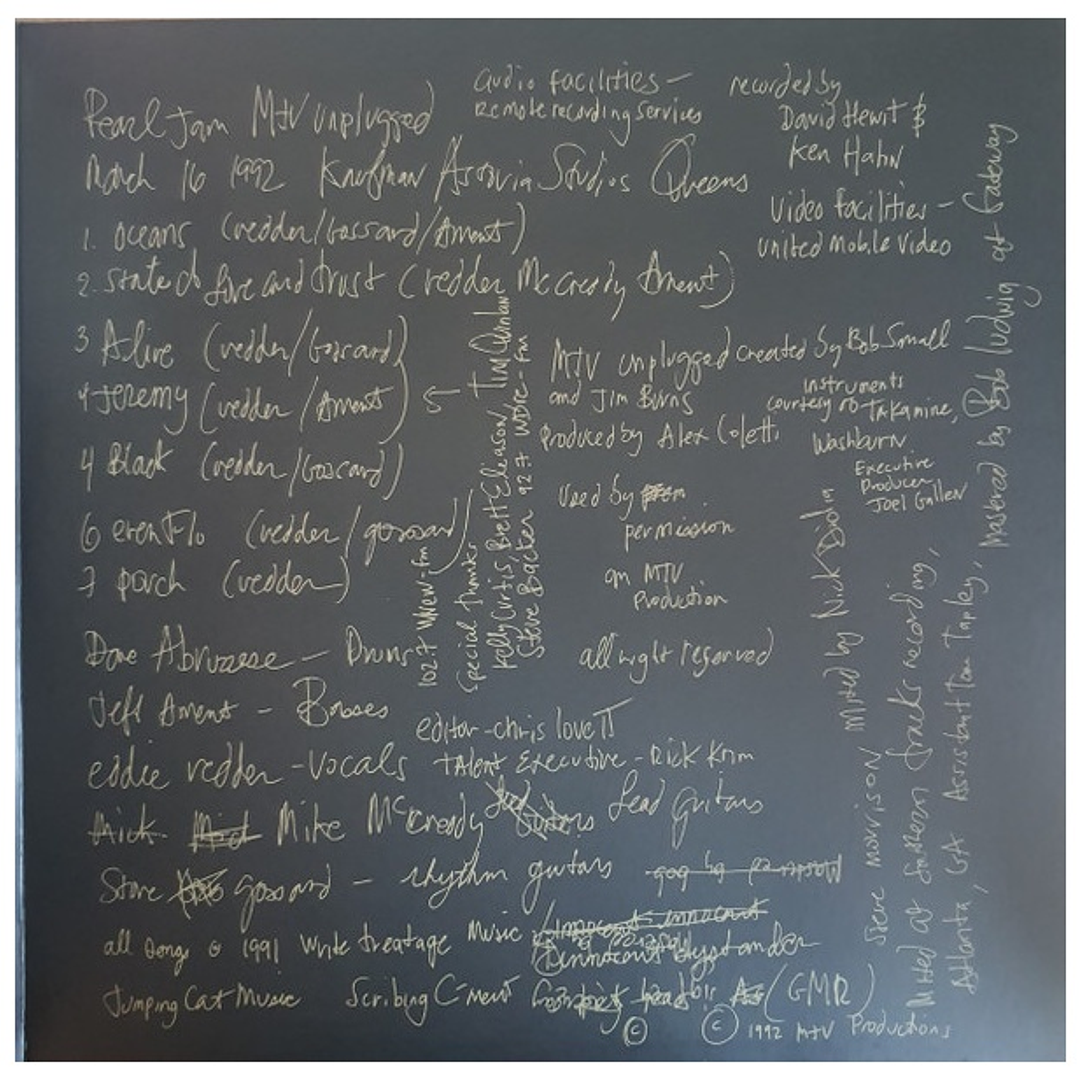 Pearl Jam MTV unplugged
March 16 1992 Kaufman Astoria Studios Queens
1. Oceans (vedder/Gossard/Ament)
2. state of love and trust (vedder McCready Ament)
3 Alive (vedder/Gossard)
4 Jeremy (vedder/Ament) 5
4 Black (vedder/Gossard)
6 evenflo (vedder/gossard)
7 porch (vedder)
audio facilities —
Remote recording services
recorded by
David Hewit &
Ken Hahn
Video facilities -
united Mobile Video
MTV unplugged created by Bob Small
and Jim Burns
Produced by Alex Coletti
instruments
courtesy of Takamine,
Washburn
Executive
Producer
Joel Gallen
Used by
permission
an MTV
Production
all right reserved
102.7 WNEW-fm
Special thanks
Kelly Curtis, Brett Eliason, Tim Quinlan
Steve Backer 92.7 WDRE-fm
Dave Abruzzese — Drums
Jeff Ament - Basses
eddie vedder - Vocals
Mick Mick Mike McCready Lead Guitars Lead Guitars
Stone gossard — rhythm guitars
editor-chris lovett
TAlent Executive - Rick Krim
all songs © 1991 write treatage Music innocent innocent
innocent bystander
Jumping Cat Music Scribing C-ment (GMR)
© © 1992 MTV Productions
Steve morrison Mixed by Nick Didia
Mixed at southern tracks recording,
Atlanta, GA Assistant Tam Tapley, mastered by Bob Ludwig at Gateway